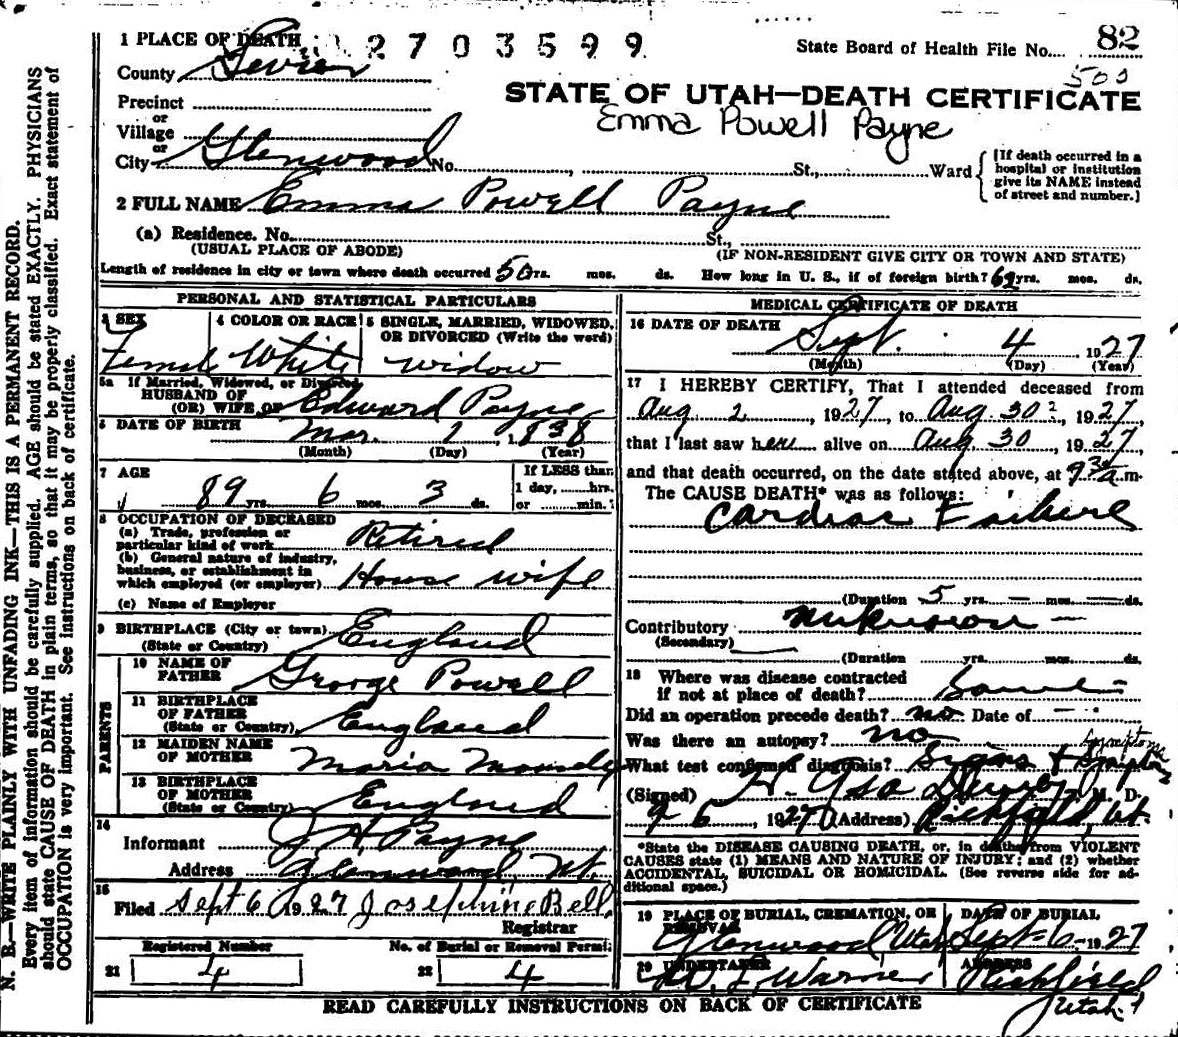 1 PLACE OF DEATH
2703599
State Board of Health File No. 82
500
County Sevier
STATE OF UTAH—DEATH CERTIFICATE
Emma Powell Payne
Precinct
or
Village
or
City Glenwood No. , St., Ward
[If death occurred in a
hospital or institution
give its NAME instead
of street and number.]
2 FULL NAME Emma Powell Payne
(a) Residence. No. St.,
(USUAL PLACE OF ABODE) (IF NON-RESIDENT GIVE CITY OR TOWN AND STATE)
Length of residence in city or town where death occurred 50 yrs. mos. ds. How long in U. S., if of foreign birth? 62 yrs. mos. ds.
PERSONAL AND STATISTICAL PARTICULARS
3 SEX 4 COLOR OR RACE 5 SINGLE, MARRIED, WIDOWED,
OR DIVORCED (Write the word)
Female White widow
5a If Married, Widowed, or Divorced
HUSBAND OF
(OR) WIFE OF Edward Payne
6 DATE OF BIRTH Mar. 1, 1838
(Month) (Day) (Year)
7 AGE If LESS than
1 day, hrs.
89 yrs. 6 mos. 3 ds. or min.
8 OCCUPATION OF DECEASED
(a) Trade, profession or
particular kind of work Retired
(b) General nature of industry,
business, or establishment in
which employed (or employer) House wife
(c) Name of Employer
9 BIRTHPLACE (City or town)
(State or Country) England
PARENTS
10 NAME OF
FATHER George Powell
11 BIRTHPLACE
OF FATHER
(State or Country) England
12 MAIDEN NAME
OF MOTHER Maria
13 BIRTHPLACE
OF MOTHER
(State or Country) England
14
Informant J H Payne
Address Glenwood, Ut.
15
Filed Sept 6 1927 Josephine Bell
Registrar
Registered Number No. of Burial or Removal Permit
21 4 22 4
MEDICAL CERTIFICATE OF DEATH
16 DATE OF DEATH
Sept. 4, 1927
(Month) (Day) (Year)
17 I HEREBY CERTIFY, That I attended deceased from
Aug 2 1927, to Aug. 30, 1927,
that I last saw her alive on Aug 30, 1927,
and that death occurred, on the date stated above, at 9 30 a m.
The CAUSE DEATH* was as follows:
Cardiac Failure
(Duration 5 yrs. — mos. — ds.
Contributory —
(Secondary)
(Duration yrs. mos. ds.
18 Where was disease contracted
if not at place of death? Same —
Did an operation precede death? no Date of —
Was there an autopsy? no
What test confirmed diagnosis? Signs + Symptoms
(Signed) H. Asa M. D.
9 6, 1927 (Address) Richfield, Ut.
*State the DISEASE CAUSING DEATH, or, in deaths from VIOLENT
CAUSES state (1) MEANS AND NATURE OF INJURY; and (2) whether
ACCIDENTAL, SUICIDAL OR HOMICIDAL. (See reverse side for ad-
ditional space.)
19 PLACE OF BURIAL, CREMATION, OR DATE OF BURIAL
REMOVAL
Glenwood Utah Sept 6 - 1927
20 UNDERTAKER ADDRESS
Warner Richfield
Utah
READ CAREFULLY INSTRUCTIONS ON BACK OF CERTIFICATE
N. B.—WRITE PLAINLY WITH UNFADING INK—THIS IS A PERMANENT RECORD.
Every item of information should be carefully supplied. AGE should be stated EXACTLY. PHYSICIANS
should state CAUSE OF DEATH in plain terms, so that it may be properly classified. Exact statement of
OCCUPATION is very important. See instructions on back of certificate.